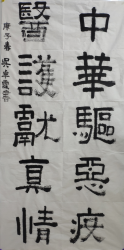 中華驅惡疫
醫護獻真情
庚子春 吳卓霞書